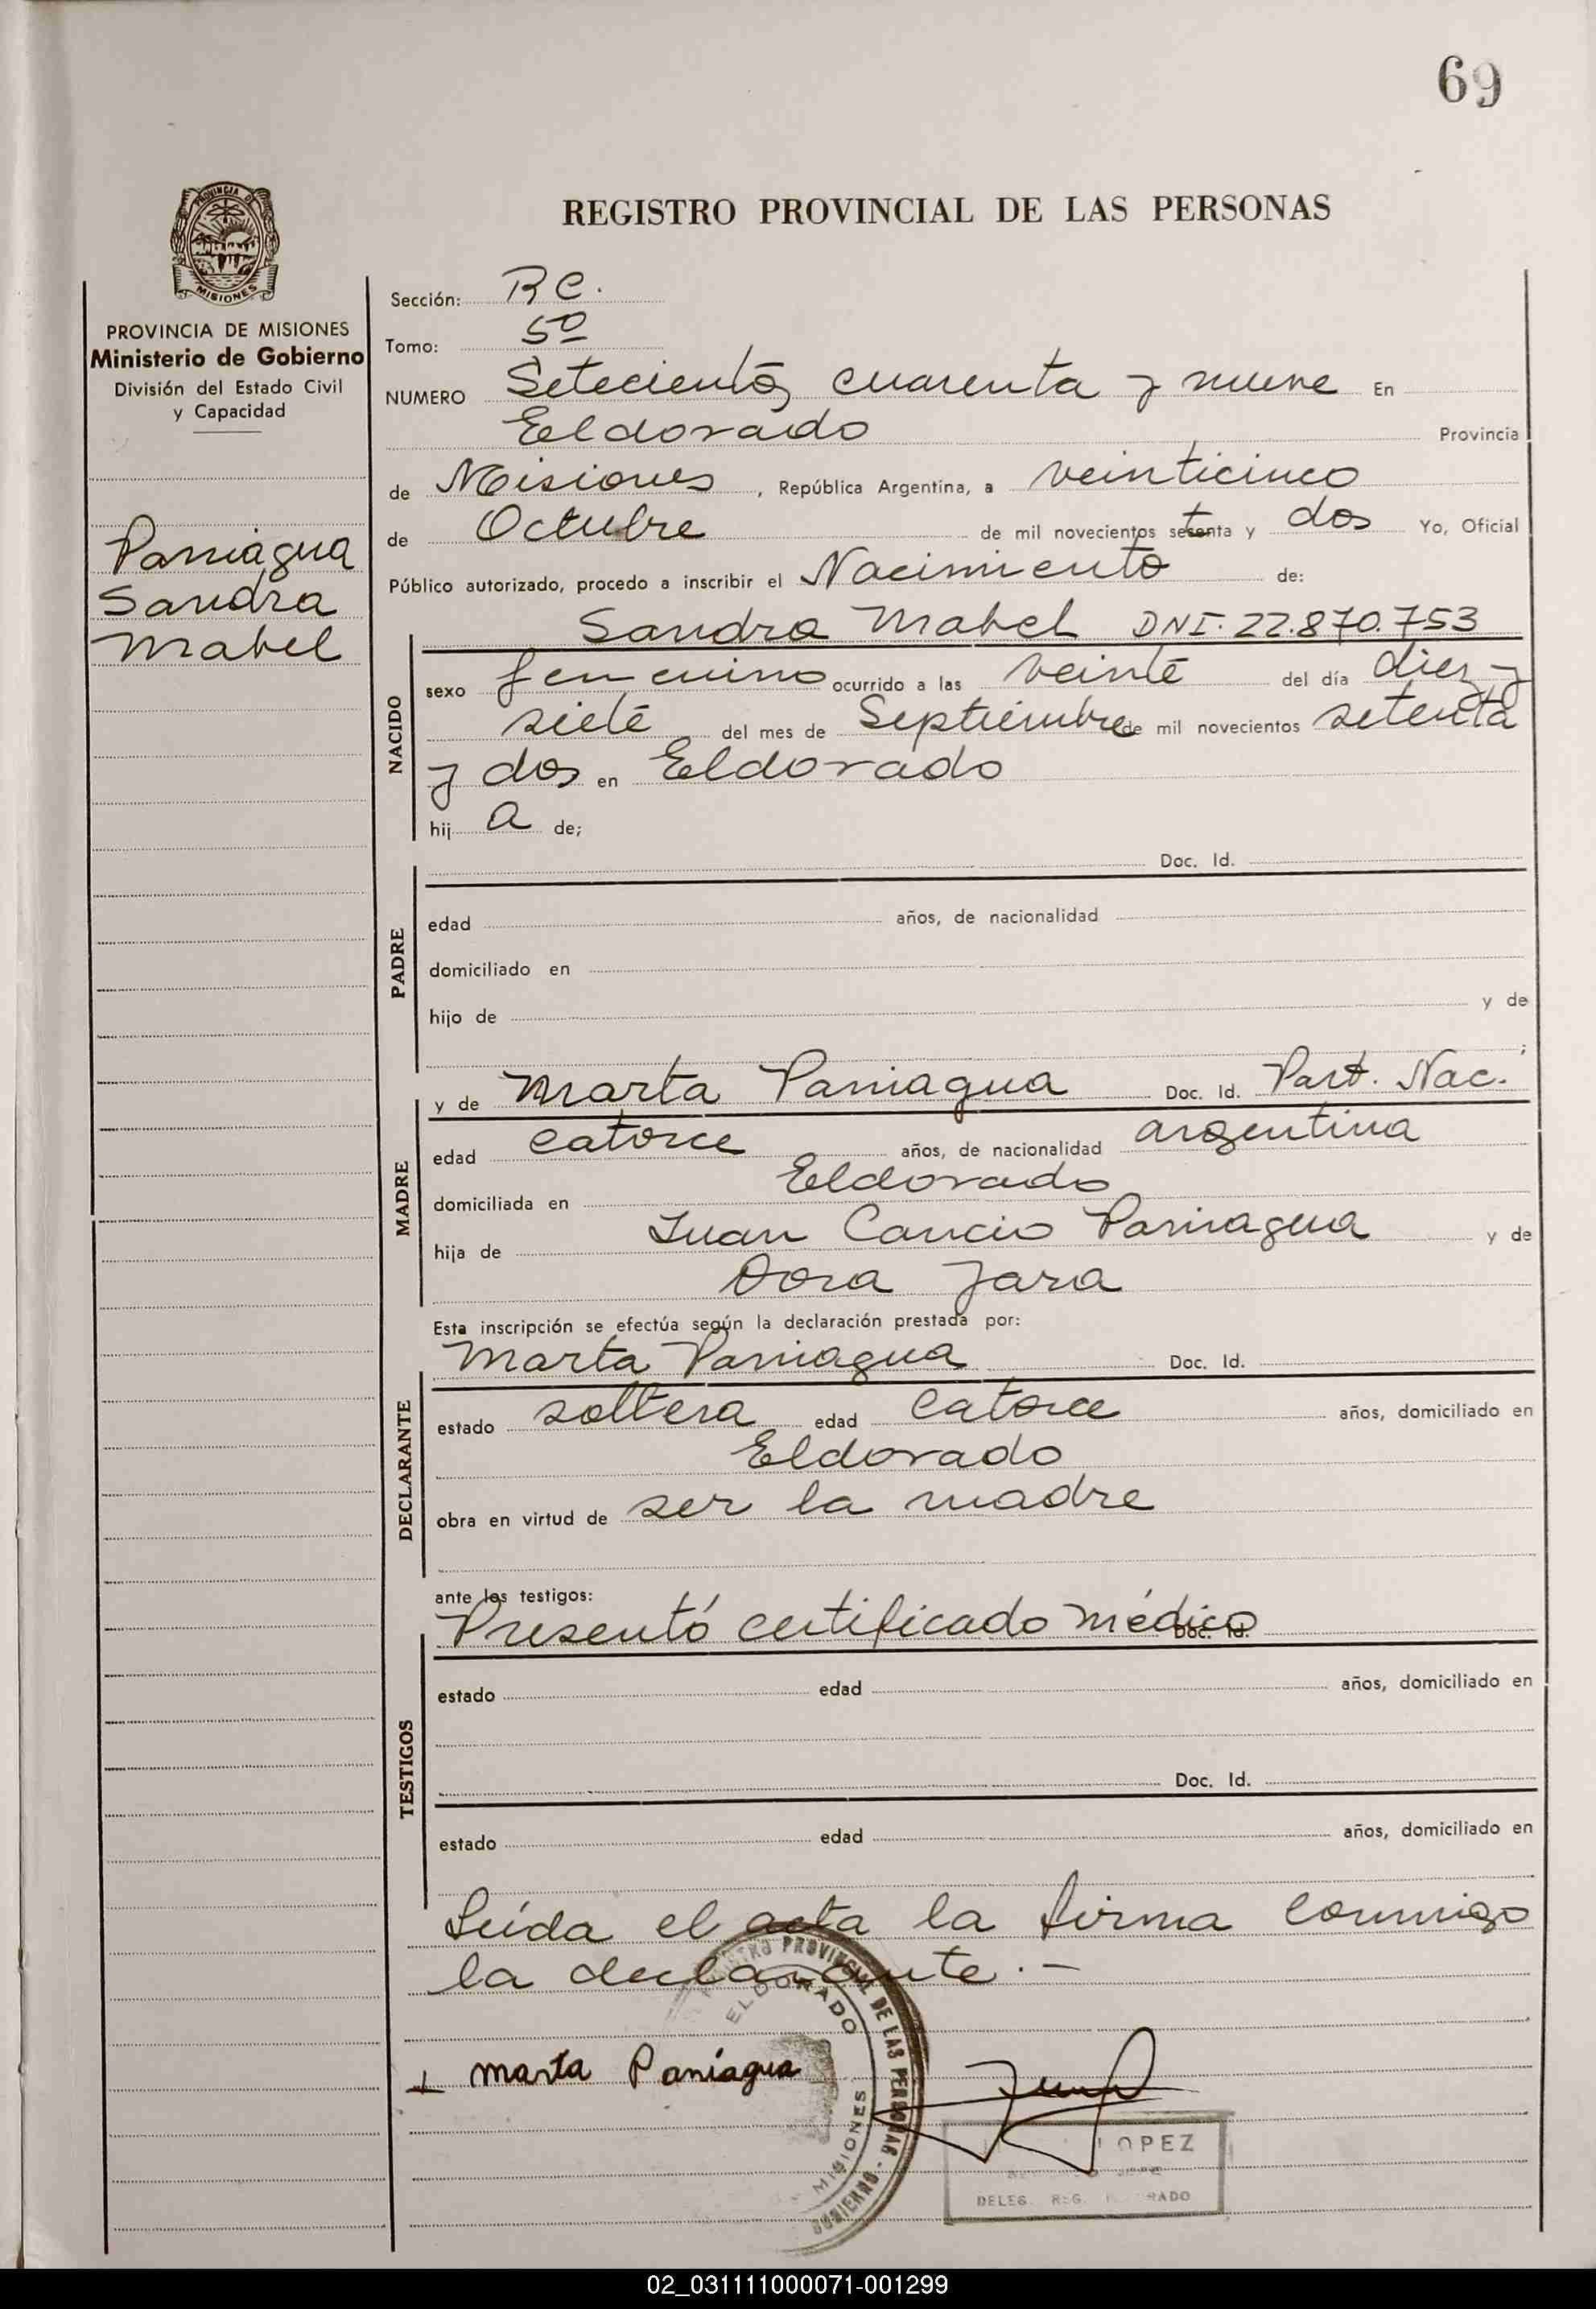 69
PROVINCIA DE
MISIONES
PROVINCIA DE MISIONES
Ministerio de Gobierno
División del Estado Civil
y Capacidad
Paniagua
Sandra
Mabel
REGISTRO PROVINCIAL DE LAS PERSONAS
Sección: R C.
Tomo: 5º
NUMERO Setecientos cuarenta y nueve En
Eldorado Provincia
de Misiones, República Argentina, a veinticinco
de Octubre de mil novecientos setenta y dos Yo, Oficial
Público autorizado, procedo a inscribir el Nacimiento de:
NACIDO
Sandra Mabel DNI. 22.870.753
sexo femenino ocurrido a las veinte del día diez y
siete del mes de Septiembre de mil novecientos setenta
y dos en Eldorado
hij a de;
PADRE
Doc. Id.
edad años, de nacionalidad
domiciliado en
hijo de y de
;
MADRE
y de Marta Paniagua Doc. Id. Part. Nac.
edad catorce años, de nacionalidad argentina
domiciliada en Eldorado
hija de Juan Cancio Paniagua y de
Dora Jara
Esta inscripción se efectúa según la declaración prestada por:
DECLARANTE
Marta Paniagua Doc. Id.
estado soltera edad catorce años, domiciliado en
Eldorado
obra en virtud de ser la madre
ante los testigos:
TESTIGOS
Presentó certificado médico Doc. Id.
estado edad años, domiciliado en
Doc. Id.
estado edad años, domiciliado en
Leída el acta la firma conmigo
la declarante.-
REGISTRO PROVINCIAL DE LAS PERSONAS - GOBIERNO
ELDORADO
MISIONES
Marta Paniagua
LOPEZ
DELEG. REG.
02_031111000071-001299